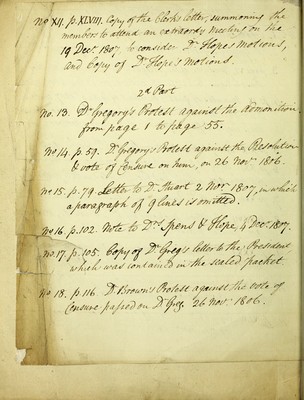 No XII. p. XLVIII. Copy of the Clerks letter, summoning the
members to attend an extraordy meeting on the
19 Decr. 1807, to consider Dr Hope's motions,
and Copy of Dr Hope's motions.
2d Part
No. 13. Dr Gregory's Protest against the admonition
from page 1 to page 55.
No 14. p. 59. Dr Gregory's Protest against the Resolution
& vote of Censure on him, on 26 Novr 1806.
No 15. p. 79. Letter to Dr Stuart 2 Novr 1807, in which
a paragraph of 9 lines is omitted.
No 16. p. 102. Note to Drs Spens & Hope, 4 Decr 1807.
No. 17. p. 105. Copy of Dr Greg's letter to the President
which was contained in the sealed packet
No 18. p. 116. Dr Brown's Protest against the vote of
Censure passed on Dr Greg. 26 Novr. 1806.